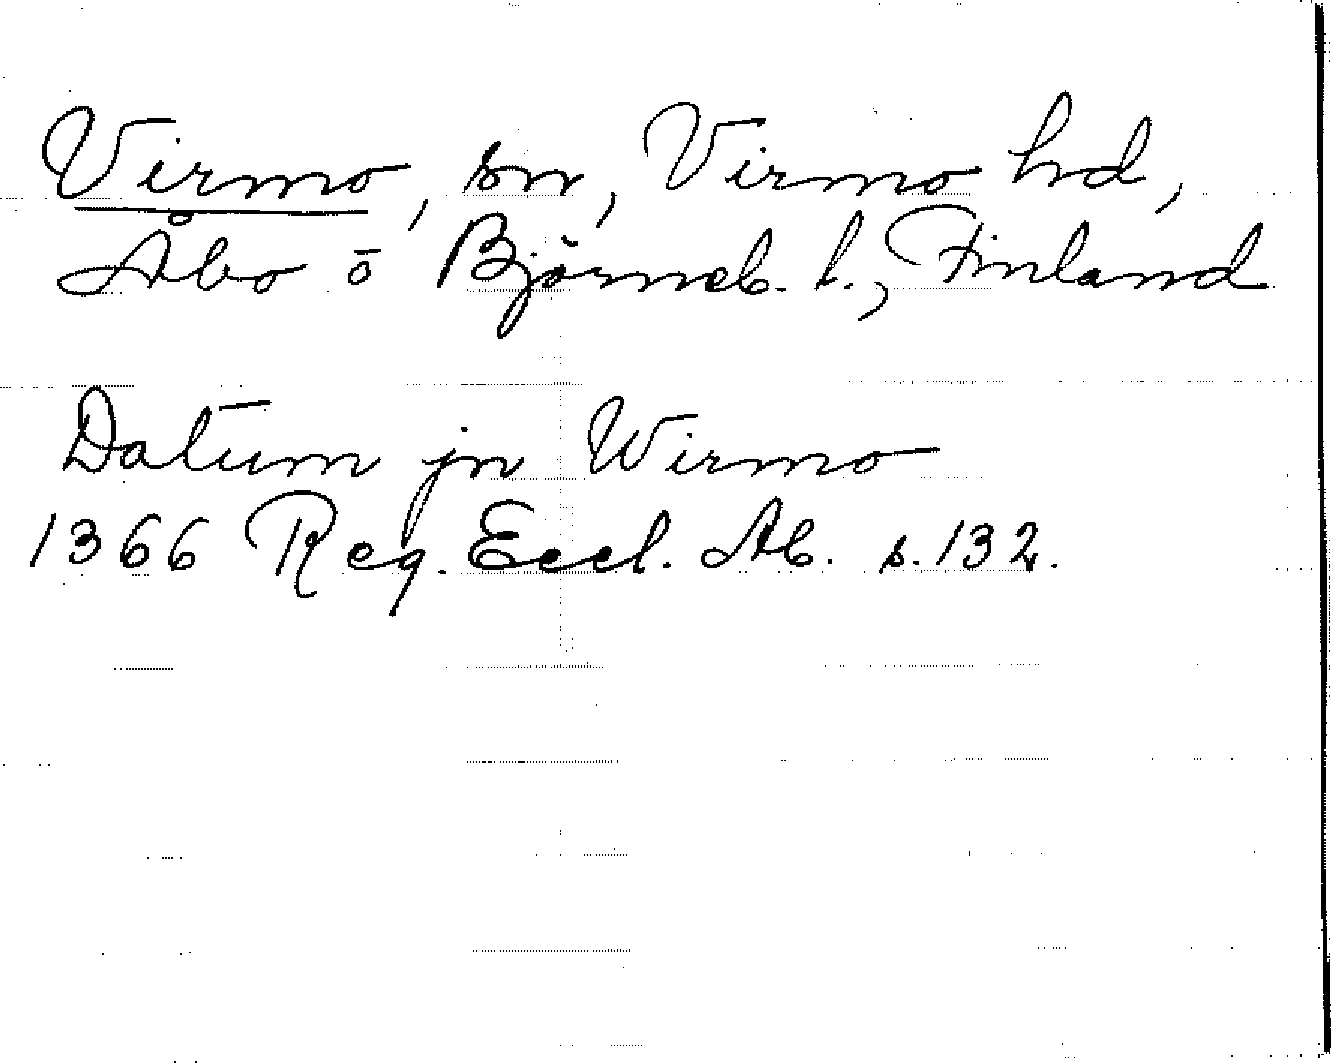 Virmo, sn, Virmo hd,
Åbo ō Björneb. l., Finland
Datum jn Wirmo
1366 Reg. Eccl. Ab. s. 132.